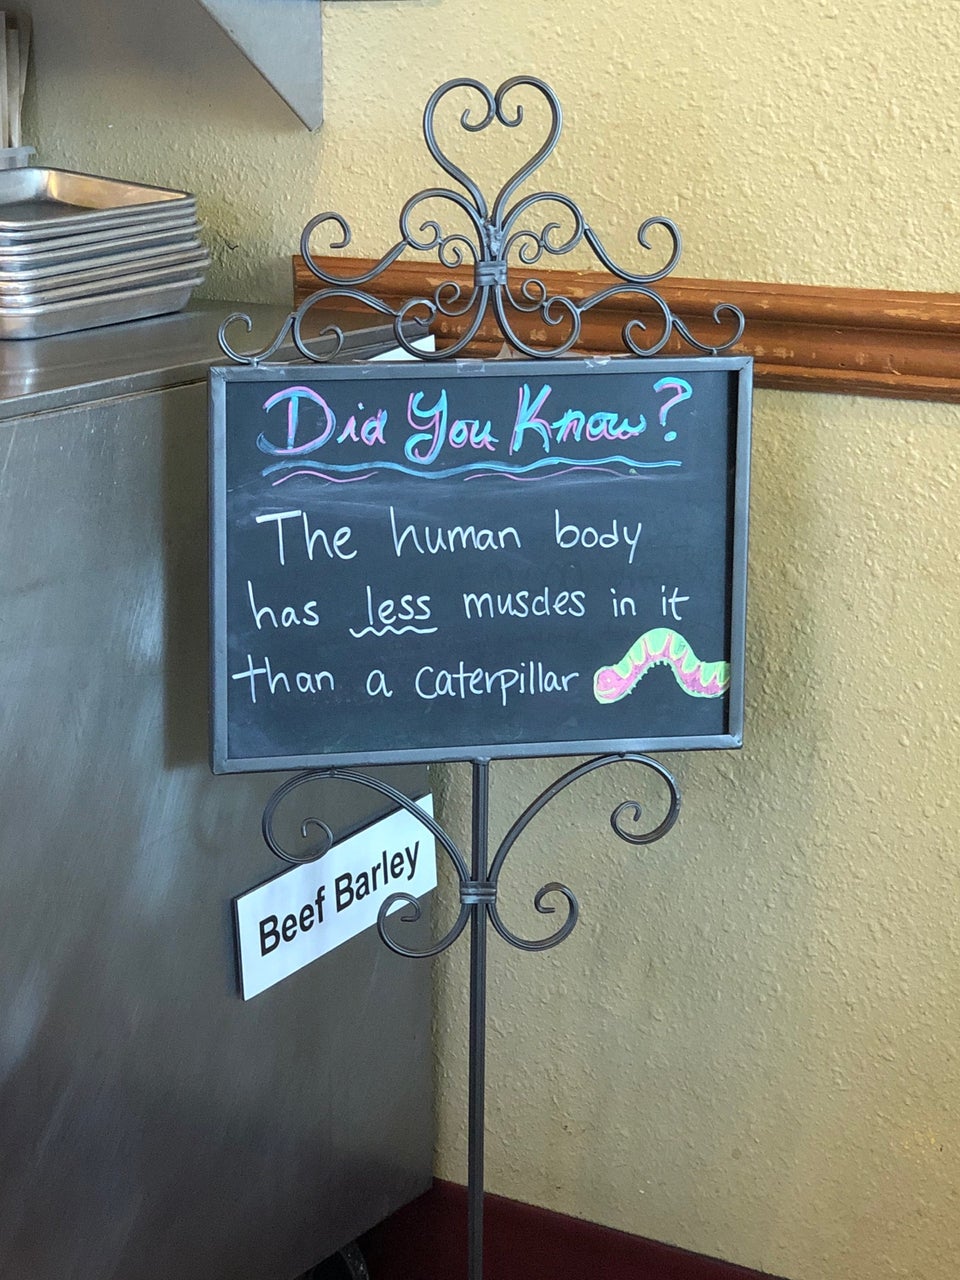 Did You Know?
The human body
has less muscles in it
than a caterpillar
Beef Barley